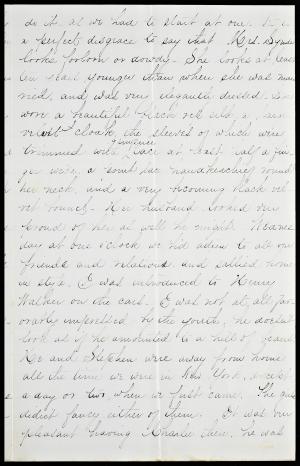 do it as we had to start at one. It is
a perfect disgrace to say that Mrs. Snyder
looks forlorn or dowdy. She looks at least
ten years younger than when she was mar
ried, and was very elegantly dressed. She
wore a beautiful black silk, a
velvet cloak, the sleeves of which were
trimmed with guipure lace at least half a fin
ger wide, a handkerchief round
her neck, and a very becoming black vel
vet bonnet. Her husband looked very
proud of her as well he might. Wednes
day at one o'clock we bid adieu to all our
friends and relations, and sallied home
in style. I was introduced to Henry
Walker on the cars. I was not at all fav
orably impressed by the youth, he doesn't
look as if he amounted to a hill of beans.
He and Stephen were away from home
all the time we were in New York, except
a day or two when we first came. The gals
didn't fancy either of them. It was very
pleasant having Charlie there, he was